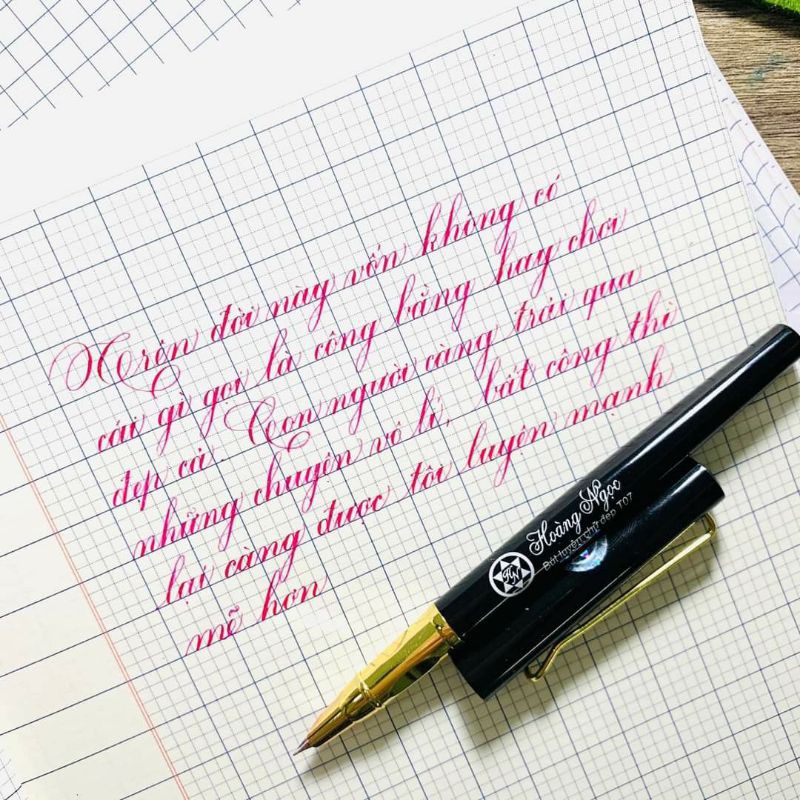 Trên đời này vốn không có
cái gì gọi là công bằng hay chơi
đẹp cả. Con người càng trải qua
những chuyện vô lí, bất công thì
lại càng được tôi luyện mạnh
mẽ hơn
Hoàng Ngọc
Bút luyện chữ đẹp T07
HN